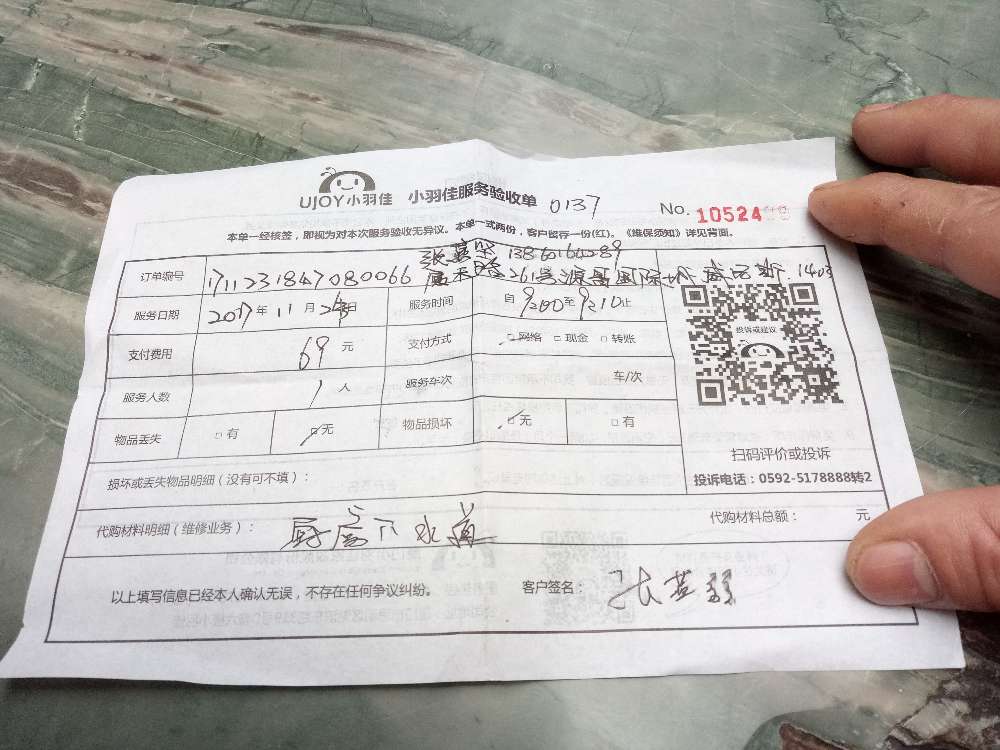 UJOY小羽佳 小羽佳服务验收单 0137 No. 10524
本单一经核签，即视为对本次服务验收无异议。本单一式两份，客户留存一份(红)。《维保须知》详见背面。
订单编号 1711231847080066
261号 国际 1403
服务日期 2017年 11月 日 服务时间 自 9:00 至 9:10 止
支付费用 69 元 支付方式 □网络 □现金 □转账
投诉或建议
服务人数 1 人 服务车次 车/次
物品丢失 □有 □无 物品损坏 □无 □有
扫码评价或投诉
损坏或丢失物品明细（没有可不填）： 投诉电话：0592-5178888转2
代购材料明细（维修业务）： 厨房下水道 代购材料总额： 元
以上填写信息已经本人确认无误，不存在任何争议纠纷。 客户签名：